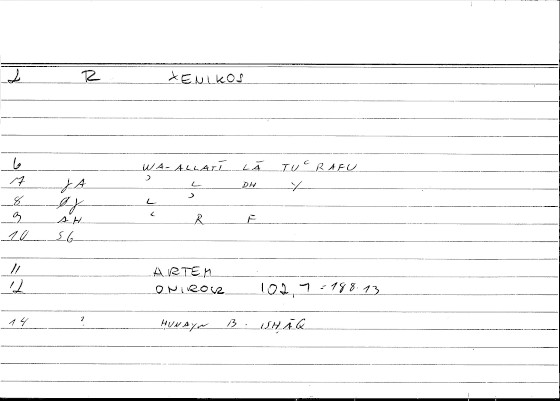 2 R XENIKOS
6 WA-ALLATĪ LĀ TUʿRAFU
7 JA ʾ L DH Y
8 ØJ L ʾ
9 AH ʿ R F
10 SG
11 ARTEM
12 ONIROCR 102,7 = 188.13
14 ? HUNAYN B. ISḤĀQ